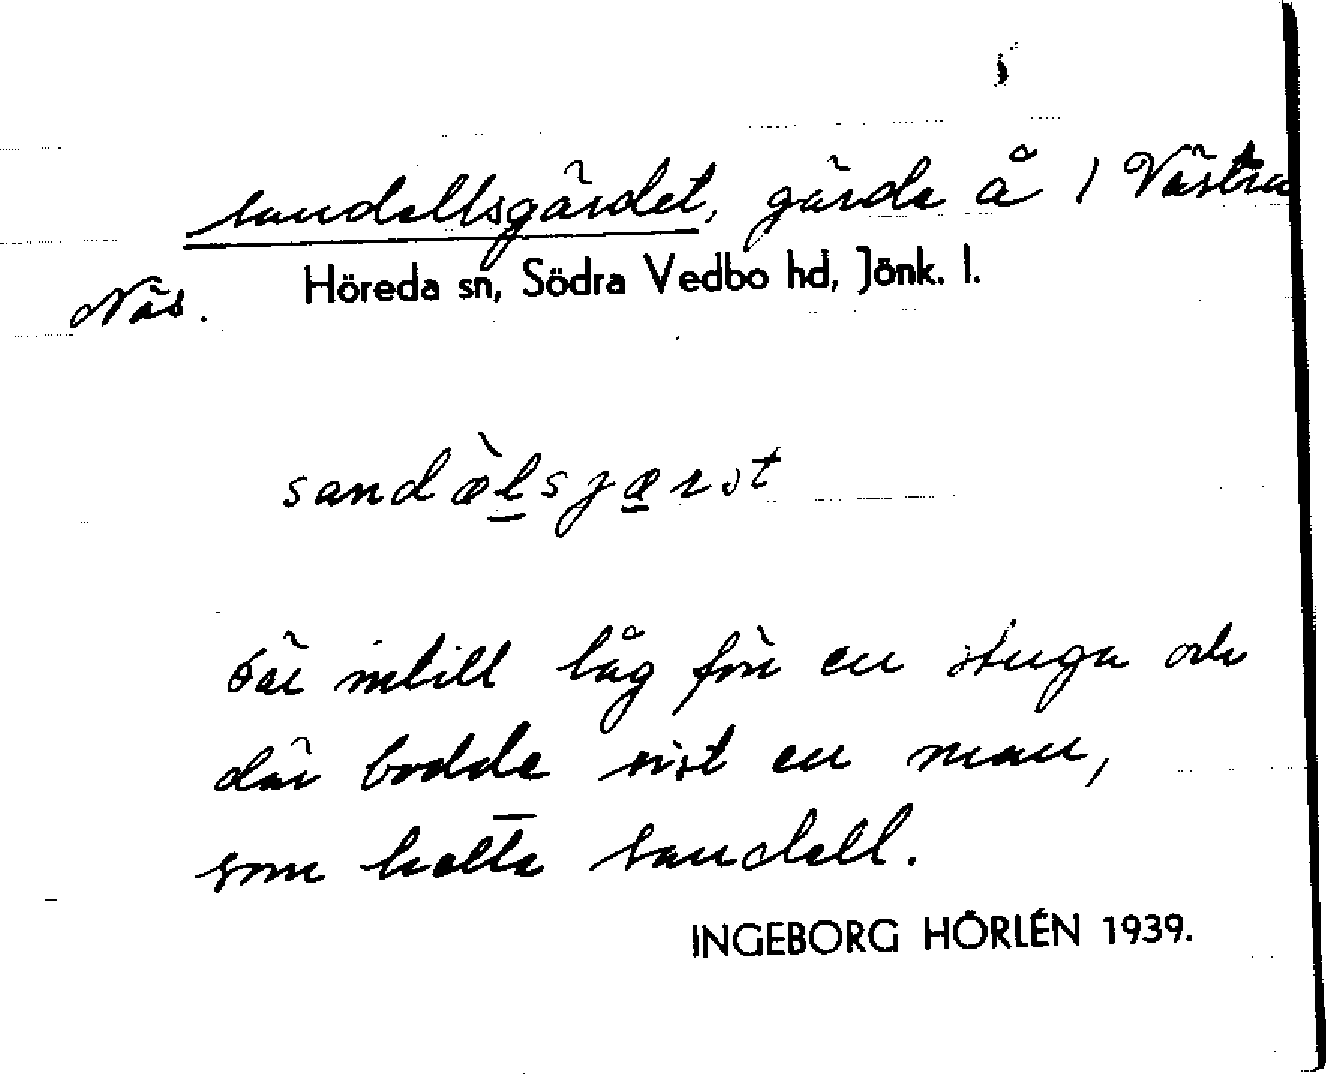 Sandellsgärdet, gärde å 1 Västra
Näs. Höreda sn, Södra Vedbo hd, Jönk. l.
sandæ̀lsjærɔt
Där intill låg förr en stuga och
där bodde sist en man,
som hette Sandell.
INGEBORG HÖRLÉN 1939.